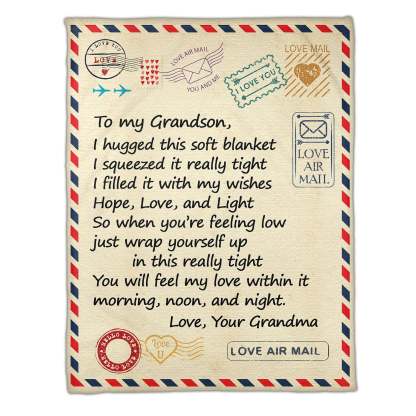 I LOVE YOU
LOVE
LOVE AIR MAIL
YOU AND ME
I LOVE YOU
LOVE MAIL
LOVE
AIR
MAIL
To my Grandson,
I hugged this soft blanket
I squeezed it really tight
I filled it with my wishes
Hope, Love, and Light
So when you're feeling low
just wrap yourself up
in this really tight
You will feel my love within it
morning, noon, and night.
Love, Your Grandma
HELLO LOVE
Love
U
LOVE AIR MAIL